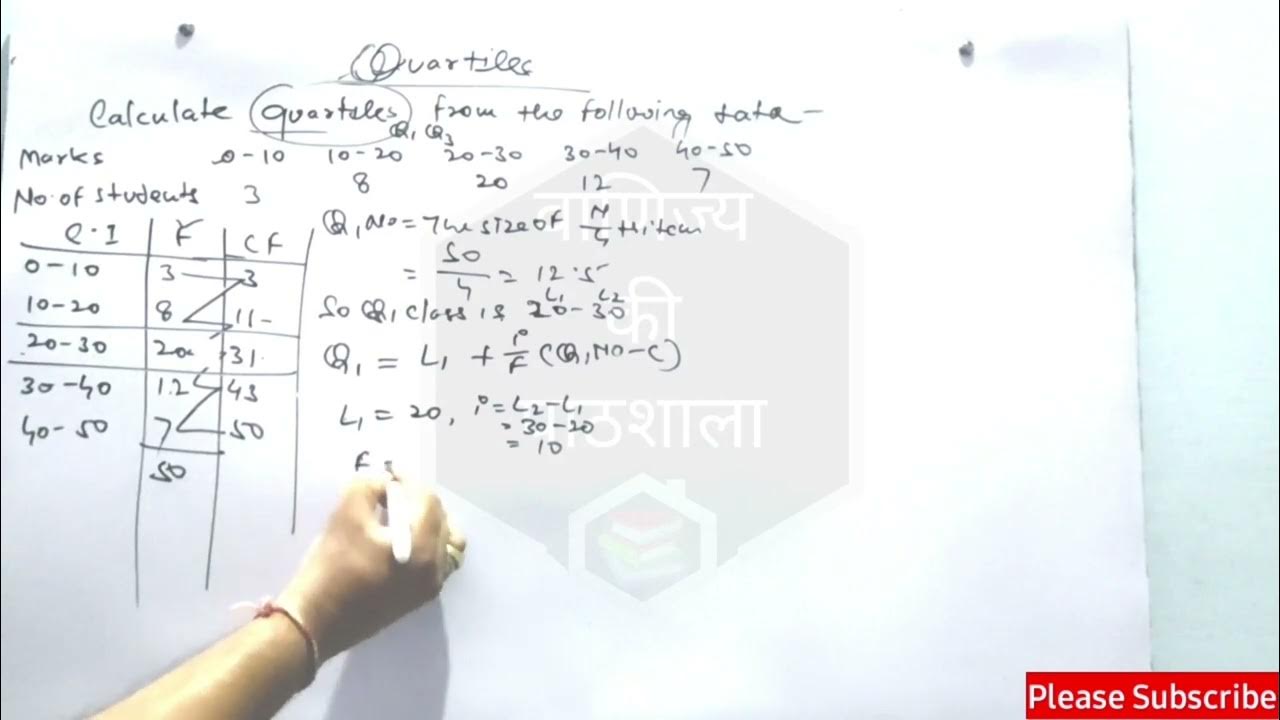 Quartiles
Calculate quartiles from the following data -
Q₁ Q₃
Marks 0-10 10-20 20-30 30-40 40-50
No. of students 3 8 20 12 7
C.I F CF
0-10 3 3
10-20 8 11
20-30 20 31
30-40 12 43
40-50 7 50
50
Q₁ No = The size of N/4 th item
= 50/4 = 12.5
L₁ L₂
So Q₁ class is 20-30
Q₁ = L₁ + i/F (Q₁ No - C)
L₁ = 20, i = L₂-L₁
= 30-20
= 10
F =
वाणिज्य
की
पाठशाला
Please Subscribe